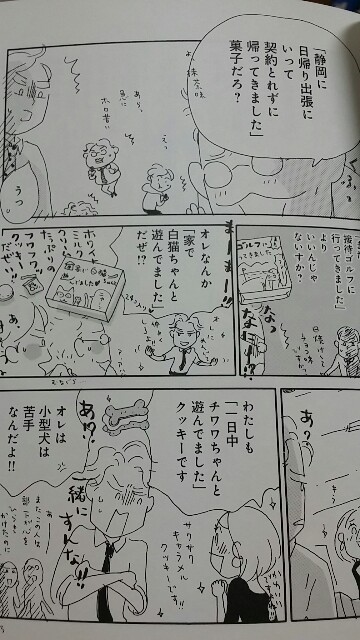 「静岡に
日帰り出張に
いって
契約とれずに
帰ってきました」
菓子だろ？
抹茶味
あり、
急に
ホロ苦い
うっ
接待ゴルフに
行ってきました」
より
いいんじゃ
ないすか？
ゴルフに
まーまー!!
オレなんか
「家で
白猫ちゃんと
遊んでました」
だぜ!?
ホワイト
ミルク
クリーム
たっぷりの
フワフワッ
クッキー
だぜい!!
むなぐら
あ？
わたしも
「一日中
チワワちゃんと
遊んでました」
クッキーです
サクサク
キャラメル
クッキーです!!
かわいい
あ!?
一緒に
すんな!!
オレは
小型犬は
苦手
なんだよ!!
あ
またこの人は